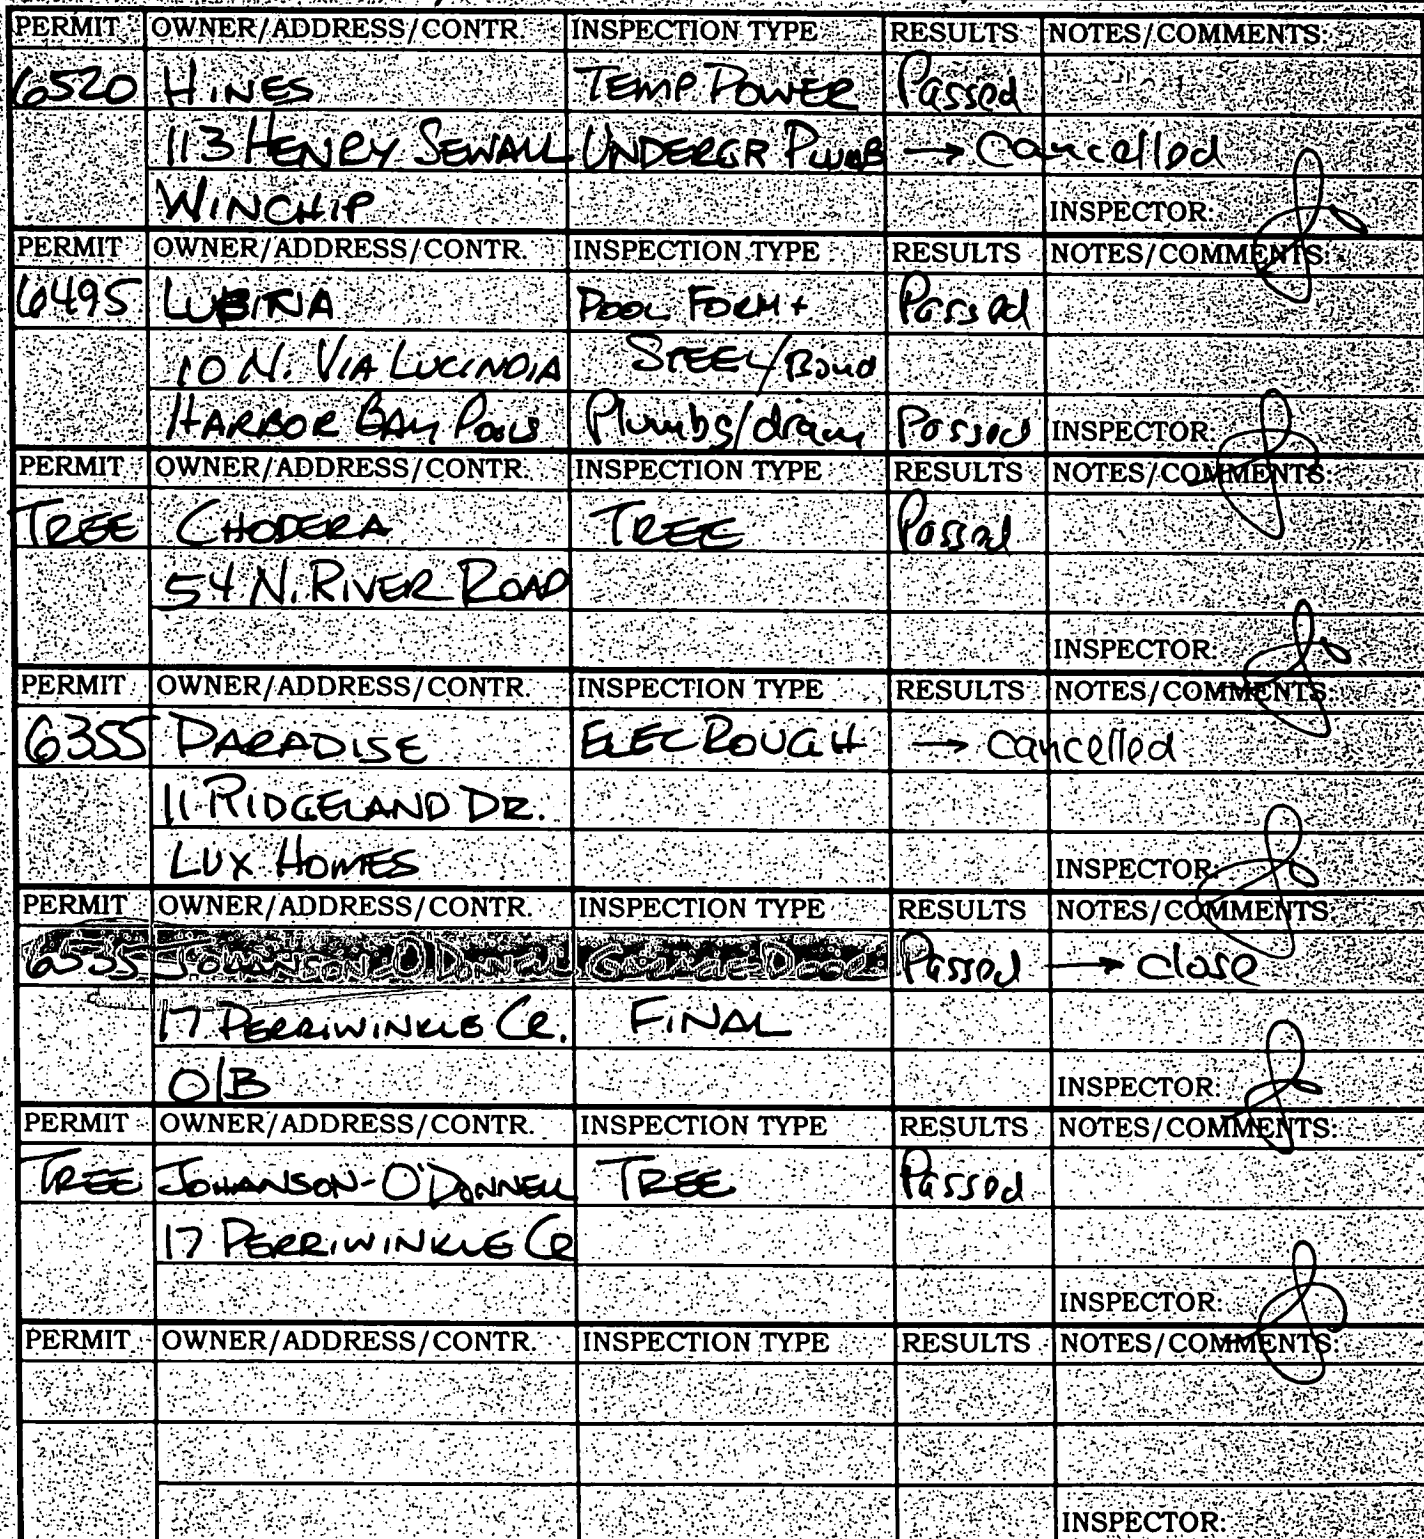 PERMIT OWNER/ADDRESS/CONTR. INSPECTION TYPE RESULTS NOTES/COMMENTS:
6520 HINES TEMP POWER Passed
113 HENRY SEWALL UNDERGR PLUMB → Cancelled
WINCHIP INSPECTOR:
PERMIT OWNER/ADDRESS/CONTR. INSPECTION TYPE RESULTS NOTES/COMMENTS:
6495 POOL FORM + Passed
10 N. VIA LUCINDIA STEEL/Bond
HARBOR BAY POOLS Plumbg/drain Passed INSPECTOR:
PERMIT OWNER/ADDRESS/CONTR. INSPECTION TYPE RESULTS NOTES/COMMENTS:
TREE CHODERA TREE Passed
54 N. RIVER ROAD
INSPECTOR:
PERMIT OWNER/ADDRESS/CONTR. INSPECTION TYPE RESULTS NOTES/COMMENTS:
6355 PARADISE ELEC ROUGH → cancelled
11 RIDGELAND DR.
LUX HOMES INSPECTOR:
PERMIT OWNER/ADDRESS/CONTR. INSPECTION TYPE RESULTS NOTES/COMMENTS:
6535 JOHANSON-O'DONNELL GARAGE DOOR Passed → close
17 PERRIWINKLE CR. FINAL
O/B INSPECTOR:
PERMIT OWNER/ADDRESS/CONTR. INSPECTION TYPE RESULTS NOTES/COMMENTS:
TREE JOHANSON-O'DONNELL TREE Passed
17 PERRIWINKLE CR
INSPECTOR:
PERMIT OWNER/ADDRESS/CONTR. INSPECTION TYPE RESULTS NOTES/COMMENTS:
INSPECTOR: